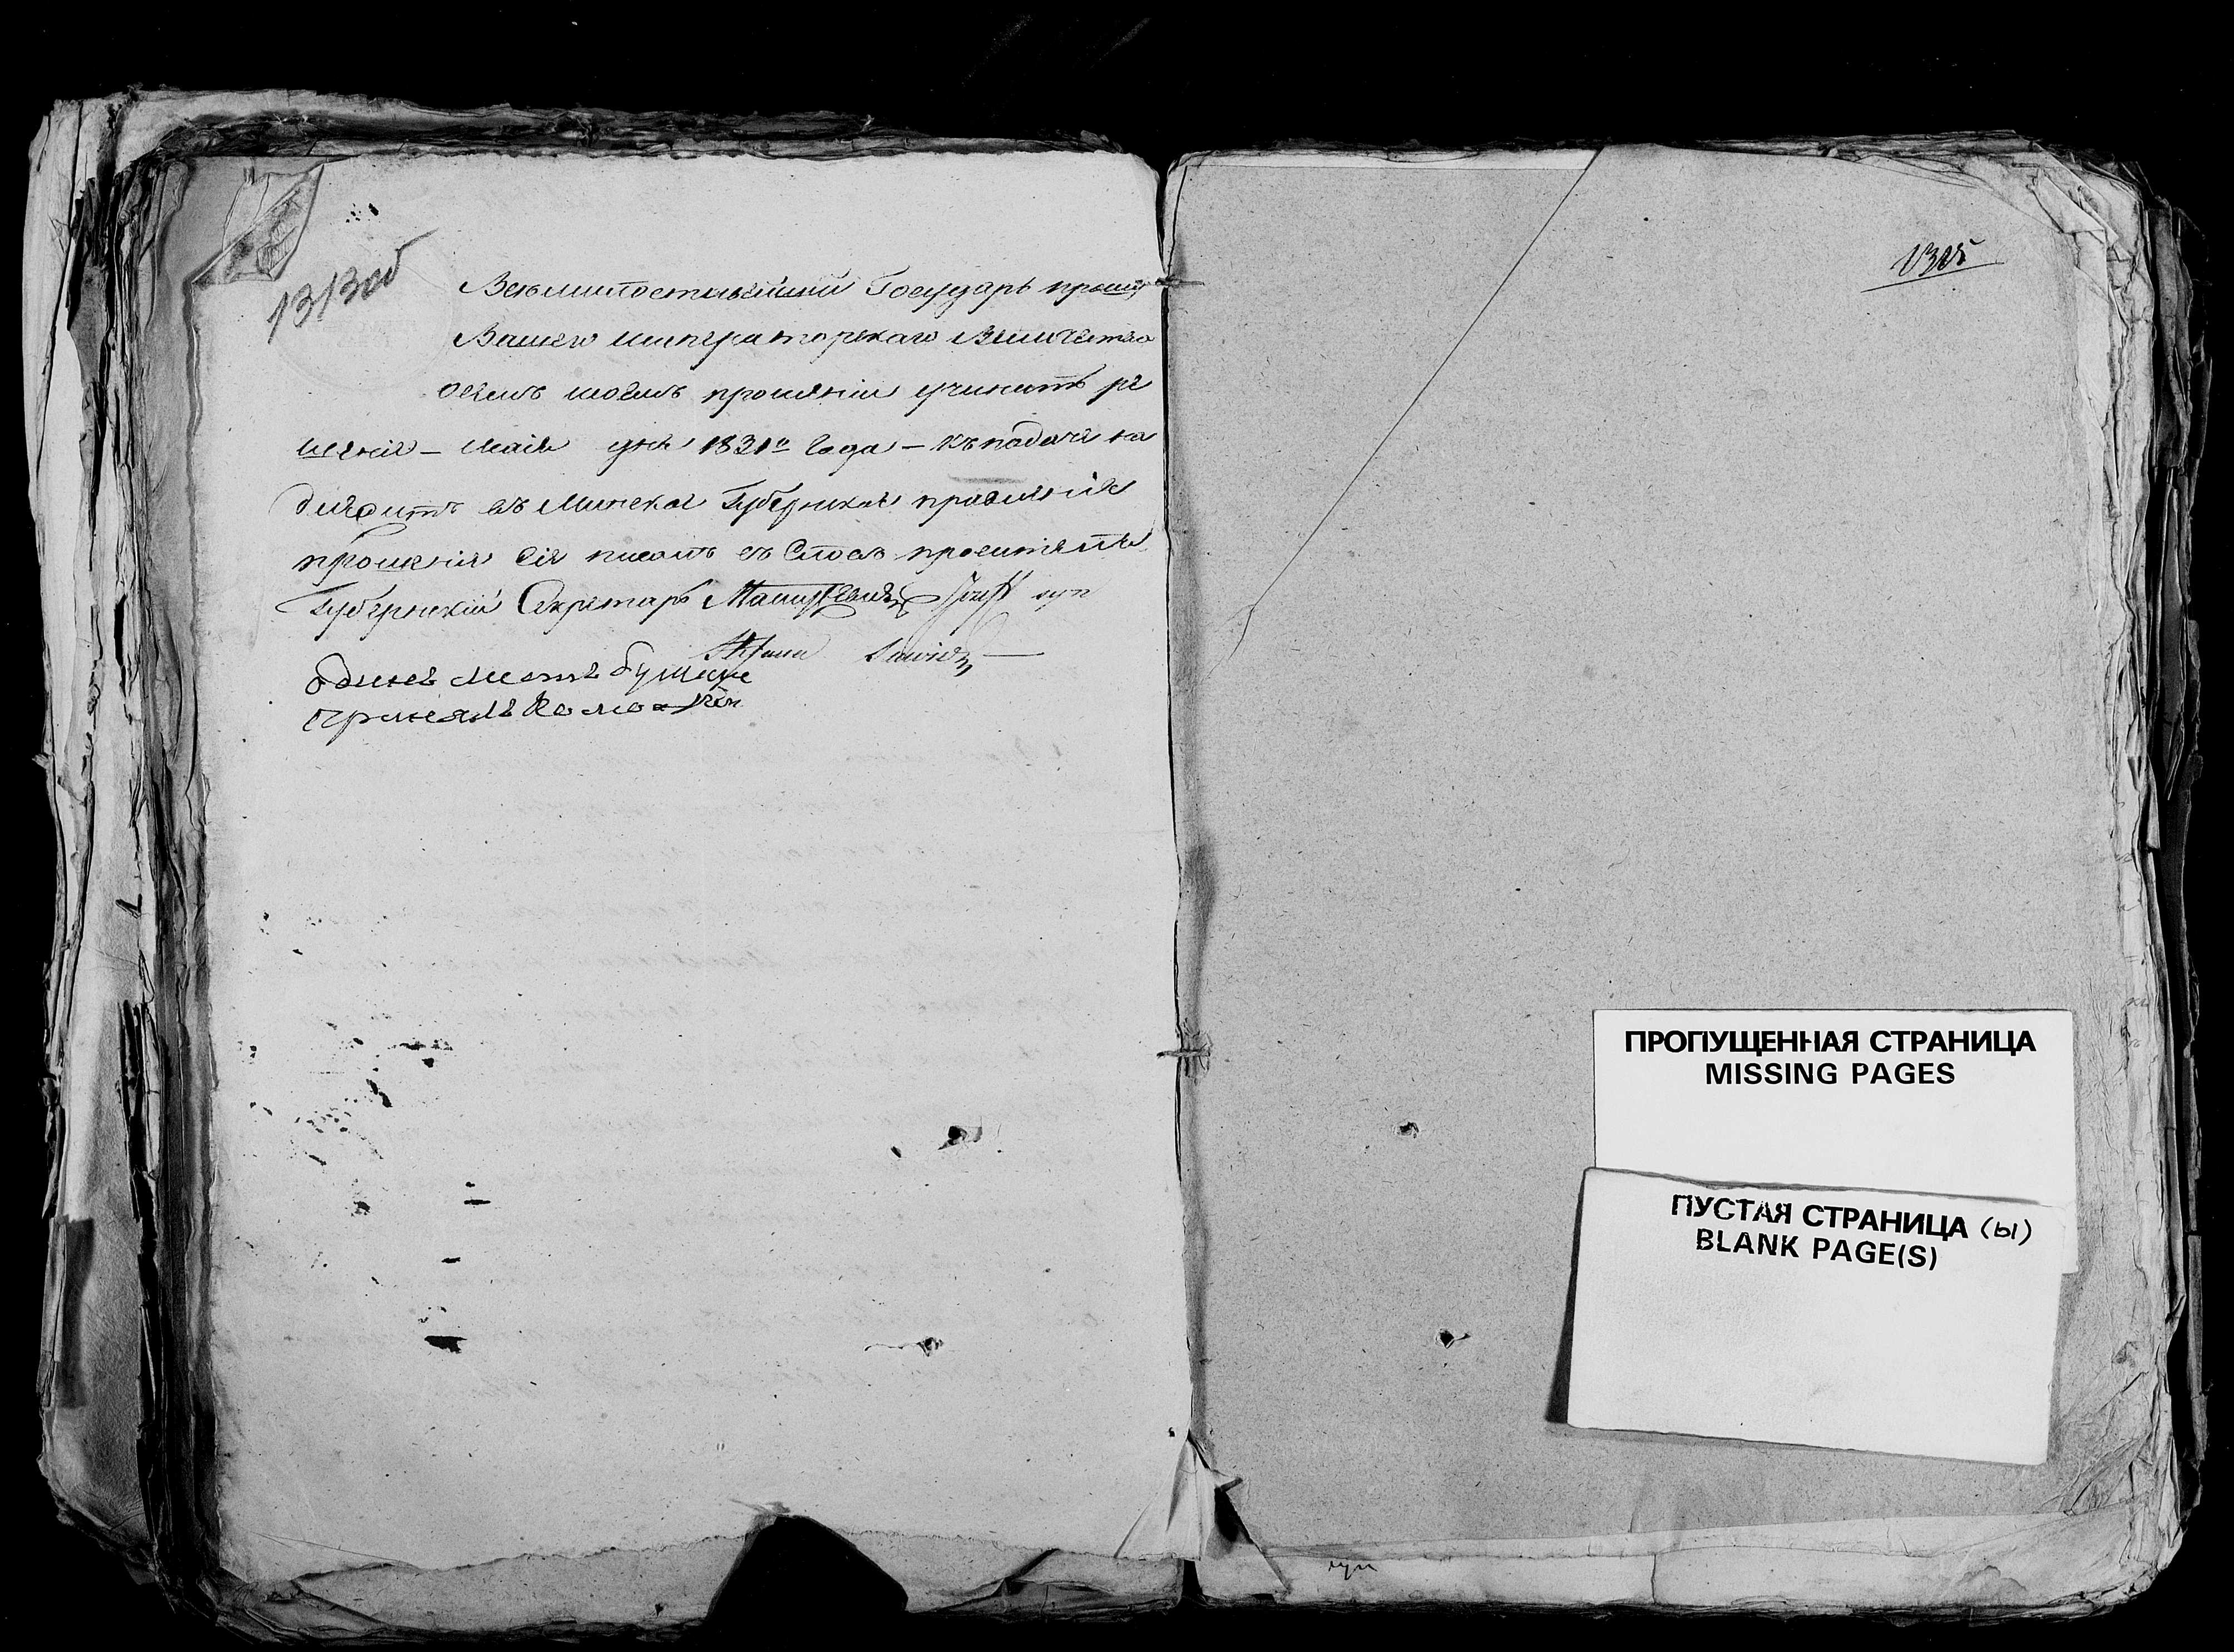 1313об
Всемилостивейшій Государь прошу
Вашего императорскаго Величества
о семъ моемъ прошеніи учинить ре
шеніе — Маія дня 1831го Года — къ подачѣ на
длежитъ въ Минское Губернское правленіе
прошеніе сіе писалъ съ Словъ просителя
Губернскій Секретарь Jozeff syn
Stefana Sawicz
одинъ листъ бумаги
принялъ
ПРОПУЩЕННАЯ СТРАНИЦА
MISSING PAGES
ПУСТАЯ СТРАНИЦА (Ы)
BLANK PAGE(S)